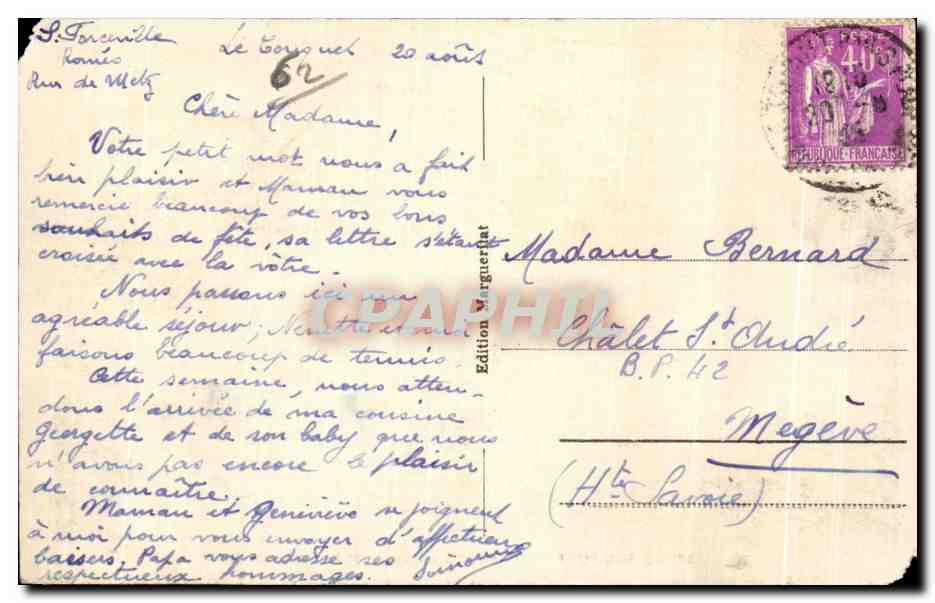 S. Forceville
Roméo
Rue de Metz
Le Touquet 20 août
62
Chère Madame,
Votre petit mot nous a fait
bien plaisir et Maman vous
remercie beaucoup de vos bons
souhaits de fête, sa lettre s'étant
croisée avec la vôtre.
Nous passons ici un
agréable séjour; Nenette et moi
faisons beaucoup de tennis.
Cette semaine, nous atten-
dons l'arrivée de ma cousine
Georgette et de son baby que nous
n'avons pas encore le plaisir
de connaître.
Maman et Geneviève se joignent
à moi pour vous envoyer d'affectueux
baisers. Papa vous adresse ses
respectueux hommages.
Edition Marguerliat
POSTES
40
REPUBLIQUE-FRANÇAISE
Madame Bernard
Châlet St André
B.P. 42
Megève
(Hte Savoie)
CPAPHIL